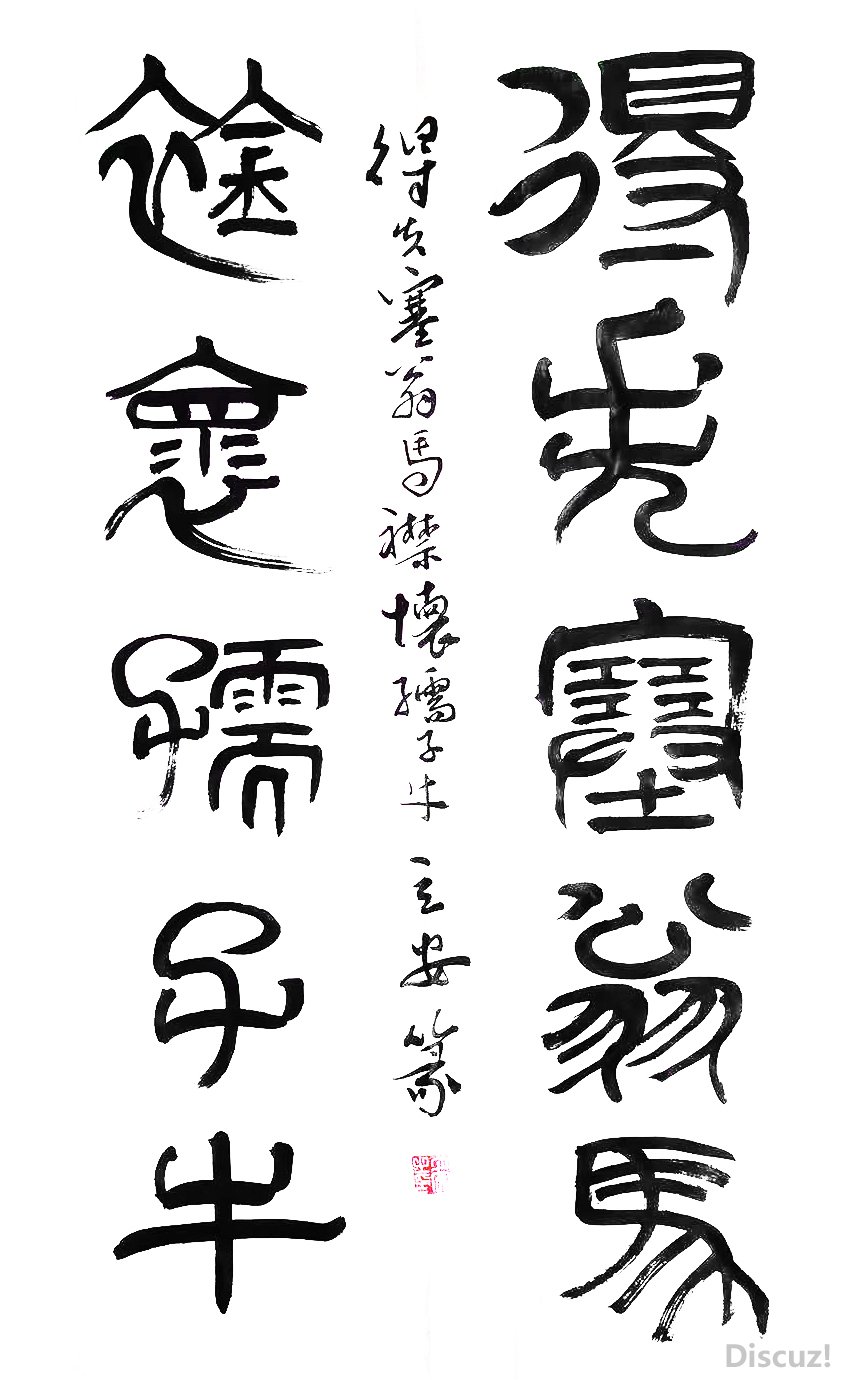 得失塞翁馬
得失塞翁馬襟懷孺子牛 安篆
襟懷孺子牛
Discuz!